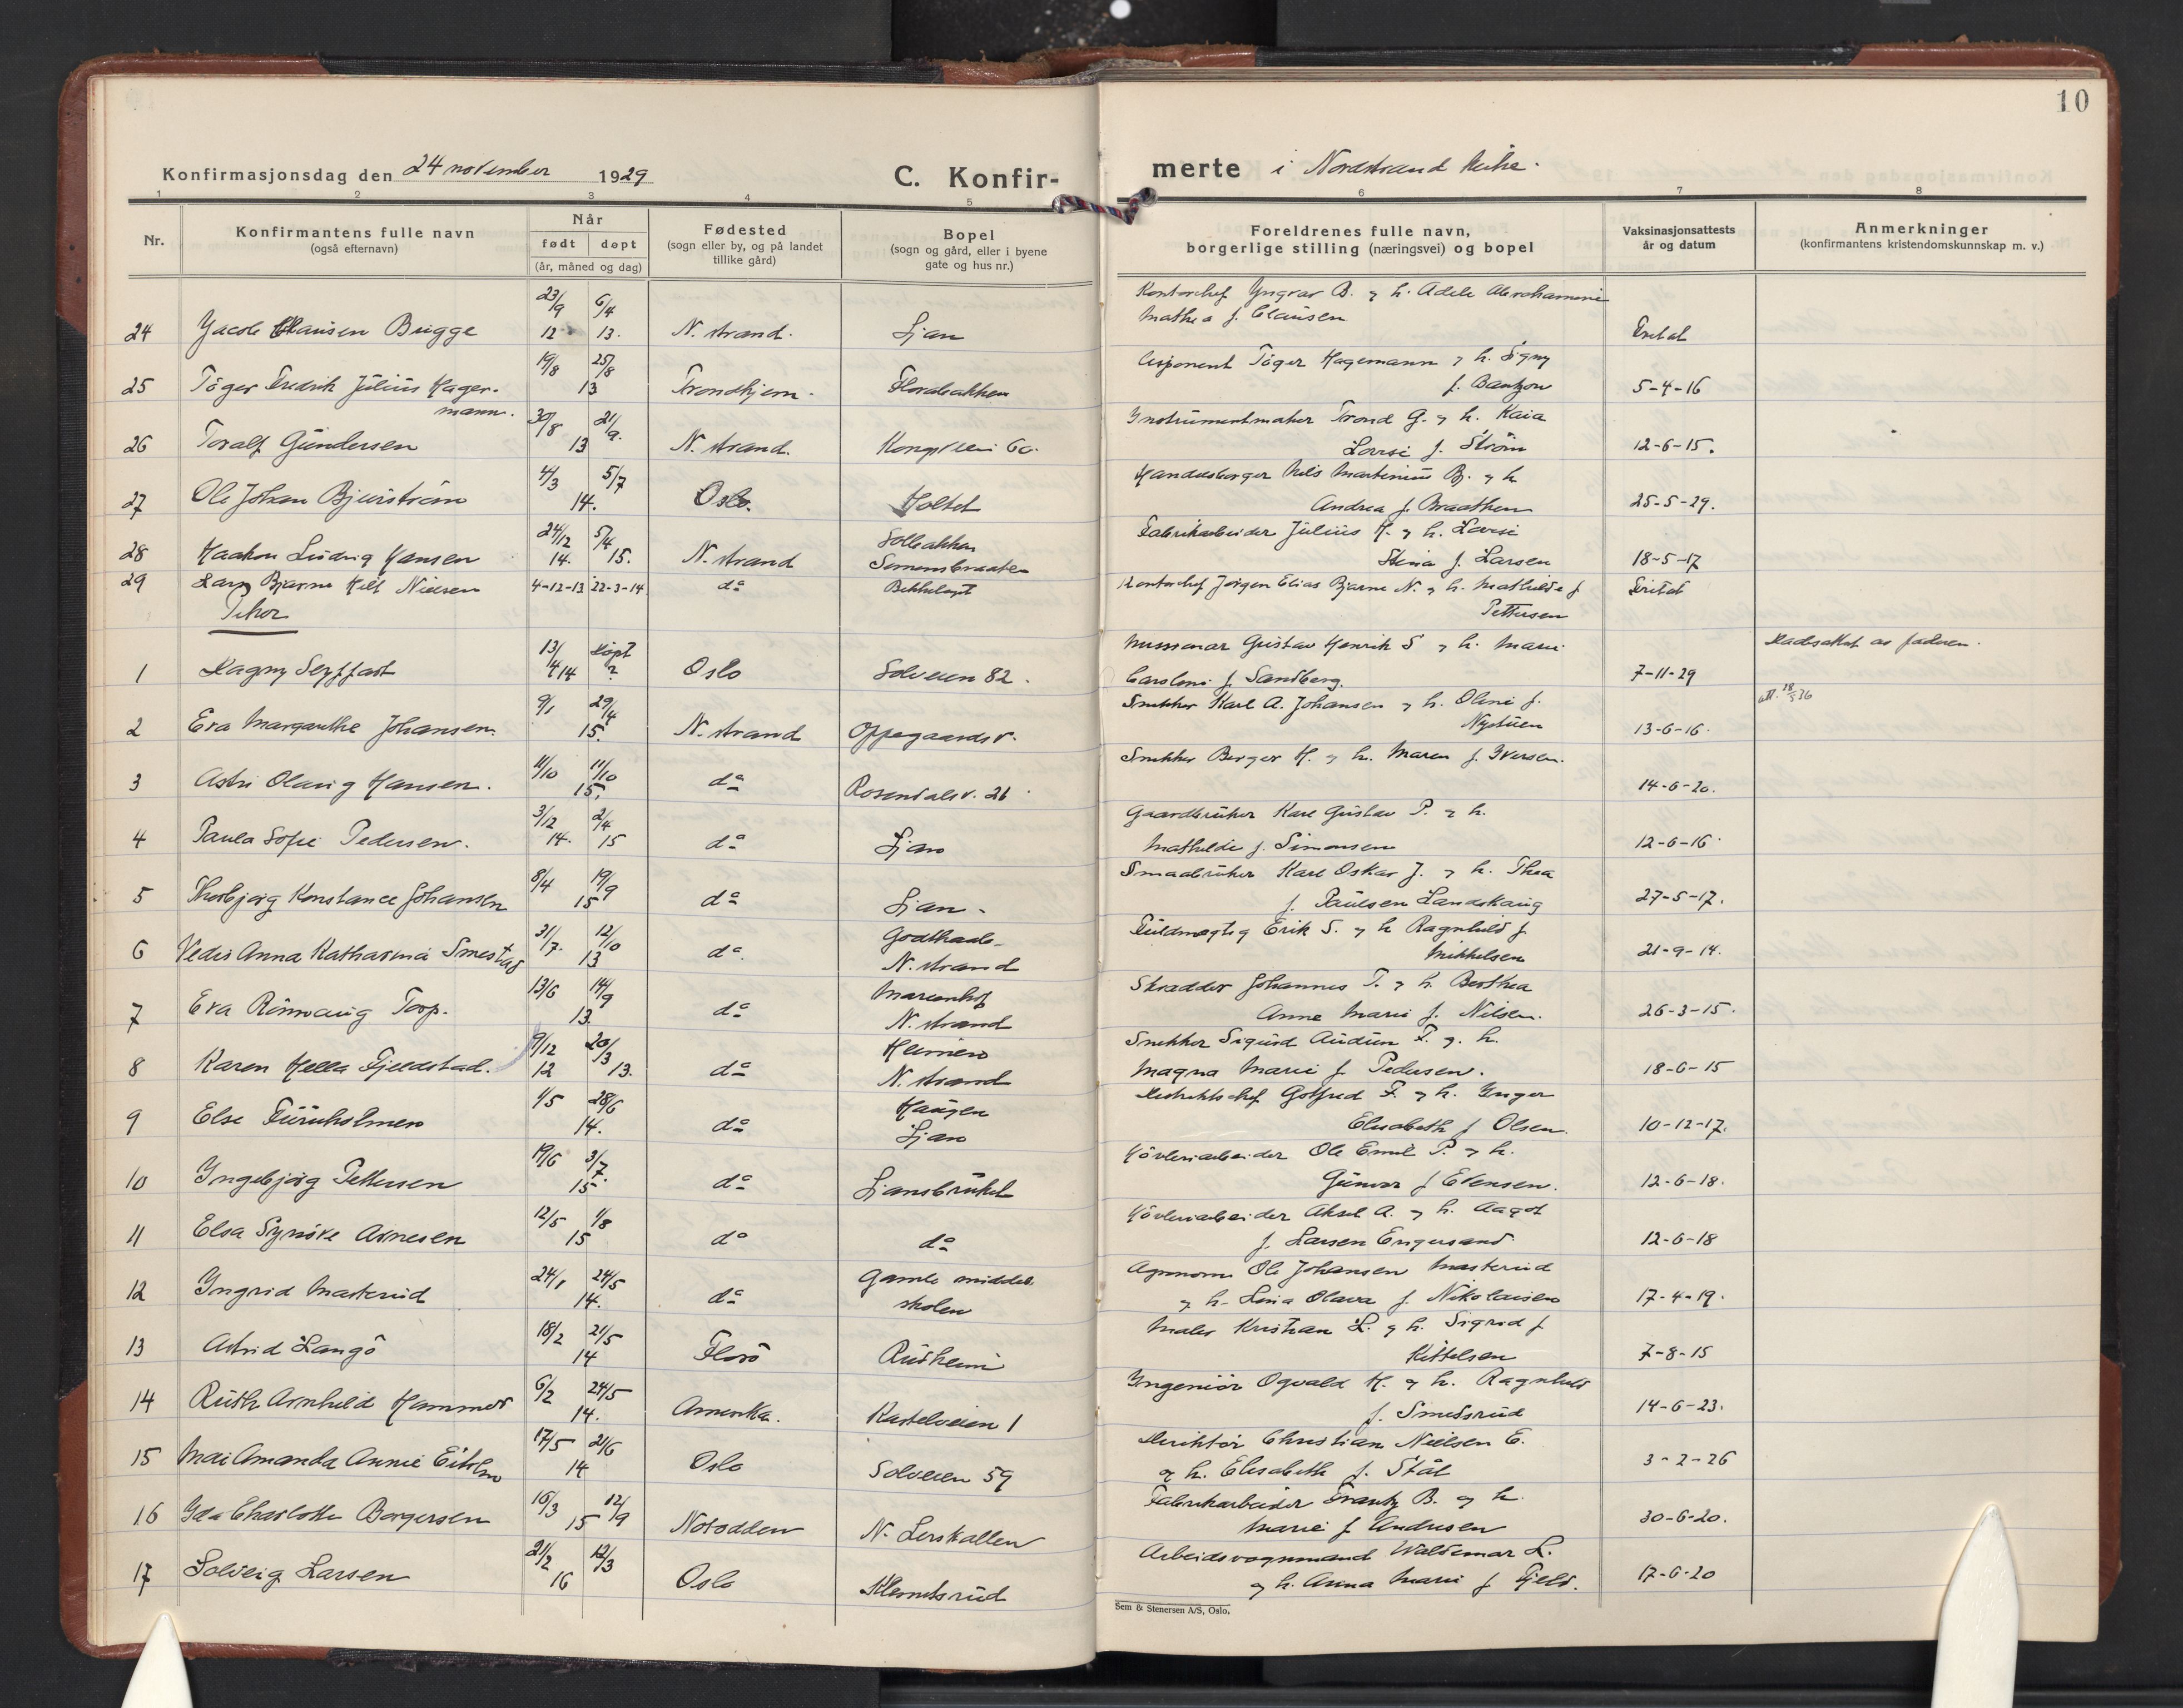 10
Konfirmasjonsdag den 24 november 1929
C. Konfir-
merte i Nordstrand kirke.
1 2 3 4 5 6 7 8
Nr.
Konfirmantens fulle navn
(også efternavn)
Når
født døpt
(år, måned og dag)
Fødested
(sogn eller by, og på landet
tillike gård)
Bopel
(sogn og gård, eller i byene
gate og hus nr.)
Foreldrenes fulle navn,
borgerlige stilling (næringsvei) og bopel
Vaksinasjonsattests
år og datum
Anmerkninger
(konfirmantens kristendomskunnskap m. v.)
23/9 6/4 Kontorchef Yngvar B. og h. Adele
24 Jacob Clausen Brigge 12 13. N. strand. Ljan Mathea f. Clausen
19/8 25/8 Disponent Töger Hagemann og h. Signy
25 Töger Fredrik Julius Hage- 13 Trondhjem. f. Bantzon 5-4-16
mann.
30/8 21/9. Instrumentmaker Trond G. og h. Kaia
26 Toralf Gundersen 13 N. strand. Kongsveien 60. Lovise f. Ström 12-6-15.
4/3 5/7 Handelsborger Nils Martinius Bj. og h
27 Ole Johan Bjurström 14. Oslo. Holtet Andrea f. Braathen 25-5-29.
24/12 5/4 Solbakken Fabrikarbeider Julius H. og h. Lovise
28 Haakon Ludvig Hansen 14. 15. N. strand Simensbraaten Stina f. Larsen 18-5-17
29 Lars Bjarne Nielsen 4-12-13 22-3-14 do Bekkelaget Kontorchef Jörgen Elias Bjarne N. og h. Mathilde f Fritat
Piker Pettersen
13/4 Döpt Gustav Henrik S og h. Marie
1 Dagny Seyffart 14 ? Oslo Solveien 82. Caroline f. Sandberg. 7-11-29
9/1 29/4 Snekker Karl A. Johansen og h. Oline f.
2 Eva Margarethe Johansen. 15. N. strand Oppegaardsv. Nystuen 13-6-16.
11/10 11/10 Snekker Berger H. og h. Maren f. Iversen.
3 Astri Olaug Hansen. 15. do Rosendalsv. 26 14-6-20.
3/12 2/4 Gaardbruker Karl Gustav P. og h.
4 Paula Sofie Pedersen. 14. 15 do Ljan Mathilde f. Simonsen 12-6-16
8/4 19/9 Smaabruker Karl Oskar J. og h. Thea
5 Thorbjörg Konstance Johansen 15 do Ljan. f. Paulsen Landskaug 27-5-17.
31/7. 12/10 Godthaab- Fuldmægtig Erik S. og h Ragnhild f
6 Vedis Anna Katharina Smestad 13 do. N. strand Mikkelsen 21-9-14.
13/6 14/9 Marienhof Skrædder Johannes T. og h. Berthea
7 Eva Rönnaug Torp. 13. do N. strand Anne Marie f. Nilsen. 26-3-15.
9/12 20/3 Heimen Snekker Sigurd Audun F. og. h.
8 Karen Hella Fjeldstad. 12 13. do N. strand Magna Marie f. Pedersen. 18-6-15
1/5 28/6 Haugen Distriktschef Gotfred F. og h. Inger
9 Else Furuholmen 14. do Ljan Elisabeth f Olsen. 10-12-17.
19/6 3/7. Hövleriarbeider Ole Emil P. og h.
10 Ingebjörg Pettersen 15 do Ljansbruket Gunvor f Evensen. 12-6-18.
12/5 1/8 Hövleriarbeider Aksel A. og h. Aagot
11 Elsa Synöve Arnesen 15 do do f. Larsen Engersand. 12-6-18
24/1 24/5 Gamle middel Agronom Ole Johansen Masterud
12 Ingrid Masterud 14. do skolen og h. Lina Olava f. Nikolaisen 17-4-19.
18/2 21/5 Maler Kristian L. og h. Sigrid f
13 Astrid Langö 14 Florö Rudheim Kittelsen 7-8-15
6/2 24/5 Ingeniör Ogvald H. og h. Ragnhild
14 Ruth Arnhild Hammer 14. Amerika. Kastelveien 1 f. Smedsrud 14-6-23.
17/5 21/6 Direktör Christian Nielsen E.
15 Mai Amanda Annie 14 Oslo Solveien 59 og h. Elisabeth f. Stål 3-2-26
16/3 12/9 Fabrikarbeider Frantz B. og h.
16 Ida Charlotte Borgersen 15 Notodden N. Lerskallen Marie f Andresen 30-6-20.
21/2 12/3 Arbeidsvognmand Waldemar L.
17 Solveig Larsen 16 Oslo Klemetsrud og h. Anna Marie f Fjeld. 17-6-20
Sem & Stenersen A/S, Oslo.